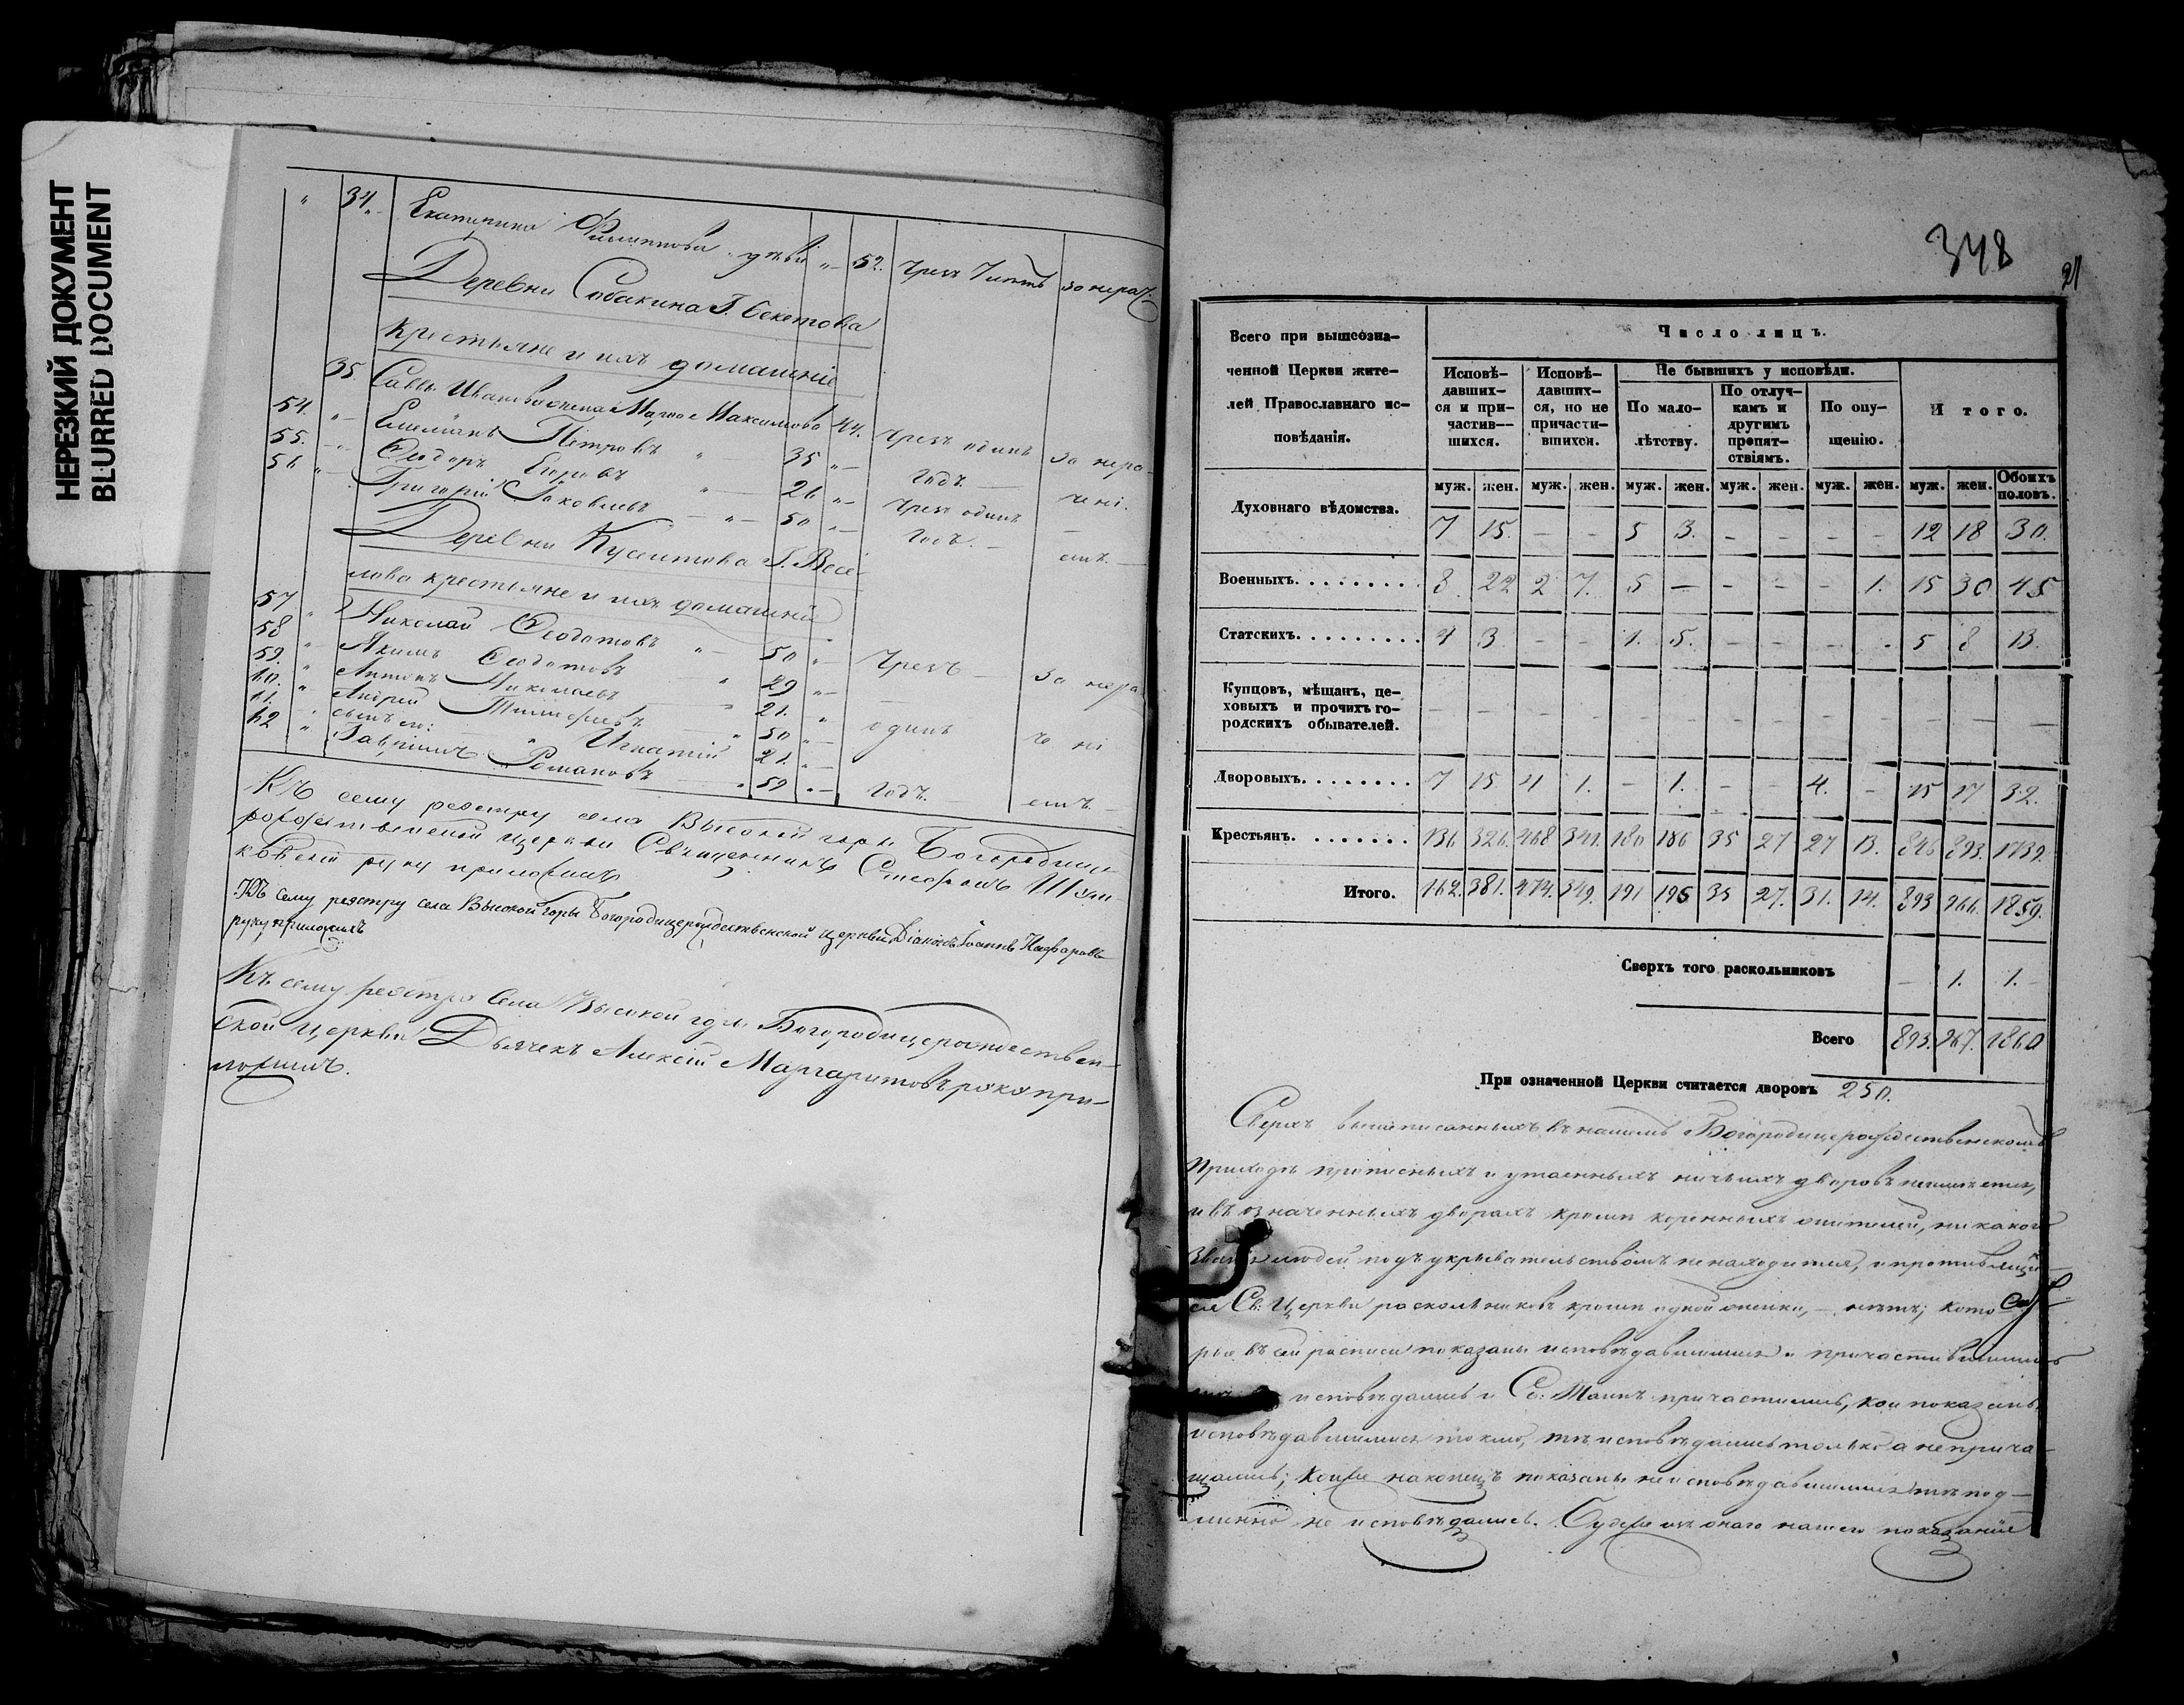 НЕРЕЗКИЙ ДОКУМЕНТ
BLURRED DOCUMENT
" 34. Екатерина Филиппова " 52. Чрез за нерад.
Деревни Собакина Г. Бекетова
крестьяне и ихъ домашніе
35. Саввы Иванова жена Марѳа Максимова 44. Чрезъ одинъ за нера-
54. " Емельянъ Петровъ " 35 " годъ. — чені-
55. " Ѳеодоръ Егоровъ " 26 " Чрезъ одинъ
56 " Григорій Іаковлевъ " 50 " годъ. — емъ.
Деревни Г. Весе-
лова крестьяне и ихъ домашніе
57 " Николай Ѳеодотовъ " 50 " Чрезъ за нера-
58 " Якимъ Ѳеодотовъ " 29 "
59. " Антонъ Николаевъ " 21. " одинъ чені
60. " Андрей Тимоѳеевъ " 50 "
61. " сынъ его: Игнатій 21. "
62 " Романовъ " 59 " годъ. емъ.
Къ сему реестру села Высокой горы Богородице-
рождественской церкви Священникъ Стефанъ
руку приложилъ
Къ сему реестру села Высокой горы Богородицерождественской церкви Діаконъ Іоаннъ
руку приложилъ
Къ сему реестру Села Высокой горы Богородицерождествен-
ской церкви Дьячекъ Алексій Маргаритовъ руку при-
ложилъ.
348
21
Всего при вышеозна-
ченной Церкви жите-
лей Православнаго ис-
повѣданія.
Число лицъ.
Исповѣ-
давших-
ся и при-
частив-
шихся.
Исповѣ-
давших-
ся, но не
причасти-
вшихся.
Не бывшихъ у исповѣди.
По мало-
лѣтству.
По отлуч-
камъ и
другимъ
препят-
ствіямъ.
По опу-
щенію.
Итого.
муж. жен. муж. жен. муж. жен. муж. жен. муж. жен. муж. жен. Обоихъ половъ.
Духовнаго вѣдомства. 7 15. — — 5 3. — — — — 12 18 30.
Военныхъ. 8. 22 2 7. 5 — — — — 1. 15 30 45
Статскихъ. 4 3 — — 1. 5. — — — — 5 8 13.
Купцовъ, мѣщанъ, це-
ховыхъ и прочихъ го-
родскихъ обывателей. — — — — — — — — — — — — —
Дворовыхъ. 7 15 4 1. — 1. — — 4. — 15 17 32.
Крестьянъ. 136 326. 468 341. 180 186 35 27 27 13. 846 893. 1739.
Итого. 162. 381. 474. 349. 191 195 35 27. 31. 14. 893 966. 1859.
Сверхъ того раскольниковъ — 1. 1.
Всего 893. 967. 1860
При означенной Церкви считается дворовъ 250.
Сверхъ вышеписанныхъ въ нашемъ Богородицерождественскомъ
приходѣ прописныхъ и утаенныхъ ничьихъ дворовъ не имѣется,
и въ означенныхъ дворахъ кромѣ коренныхъ жителей, никакого
званія людей подъ укрывательствомъ не находится, и противящих-
ся Св: Церкви раскольниковъ кромѣ одной женки, — нѣтъ; кото-
рые въ сей росписи показаны исповѣдавшимися и причастившимися
исповѣдались и Св: Таинъ причастились, кои показаны
исповѣдавшимися токмо, тѣ исповѣдались только а не прича-
щались; коиже наконецъ показаны неисповѣдавшимися тѣ под-
линно не исповѣдались. Будеже изъ онаго нашего показанія